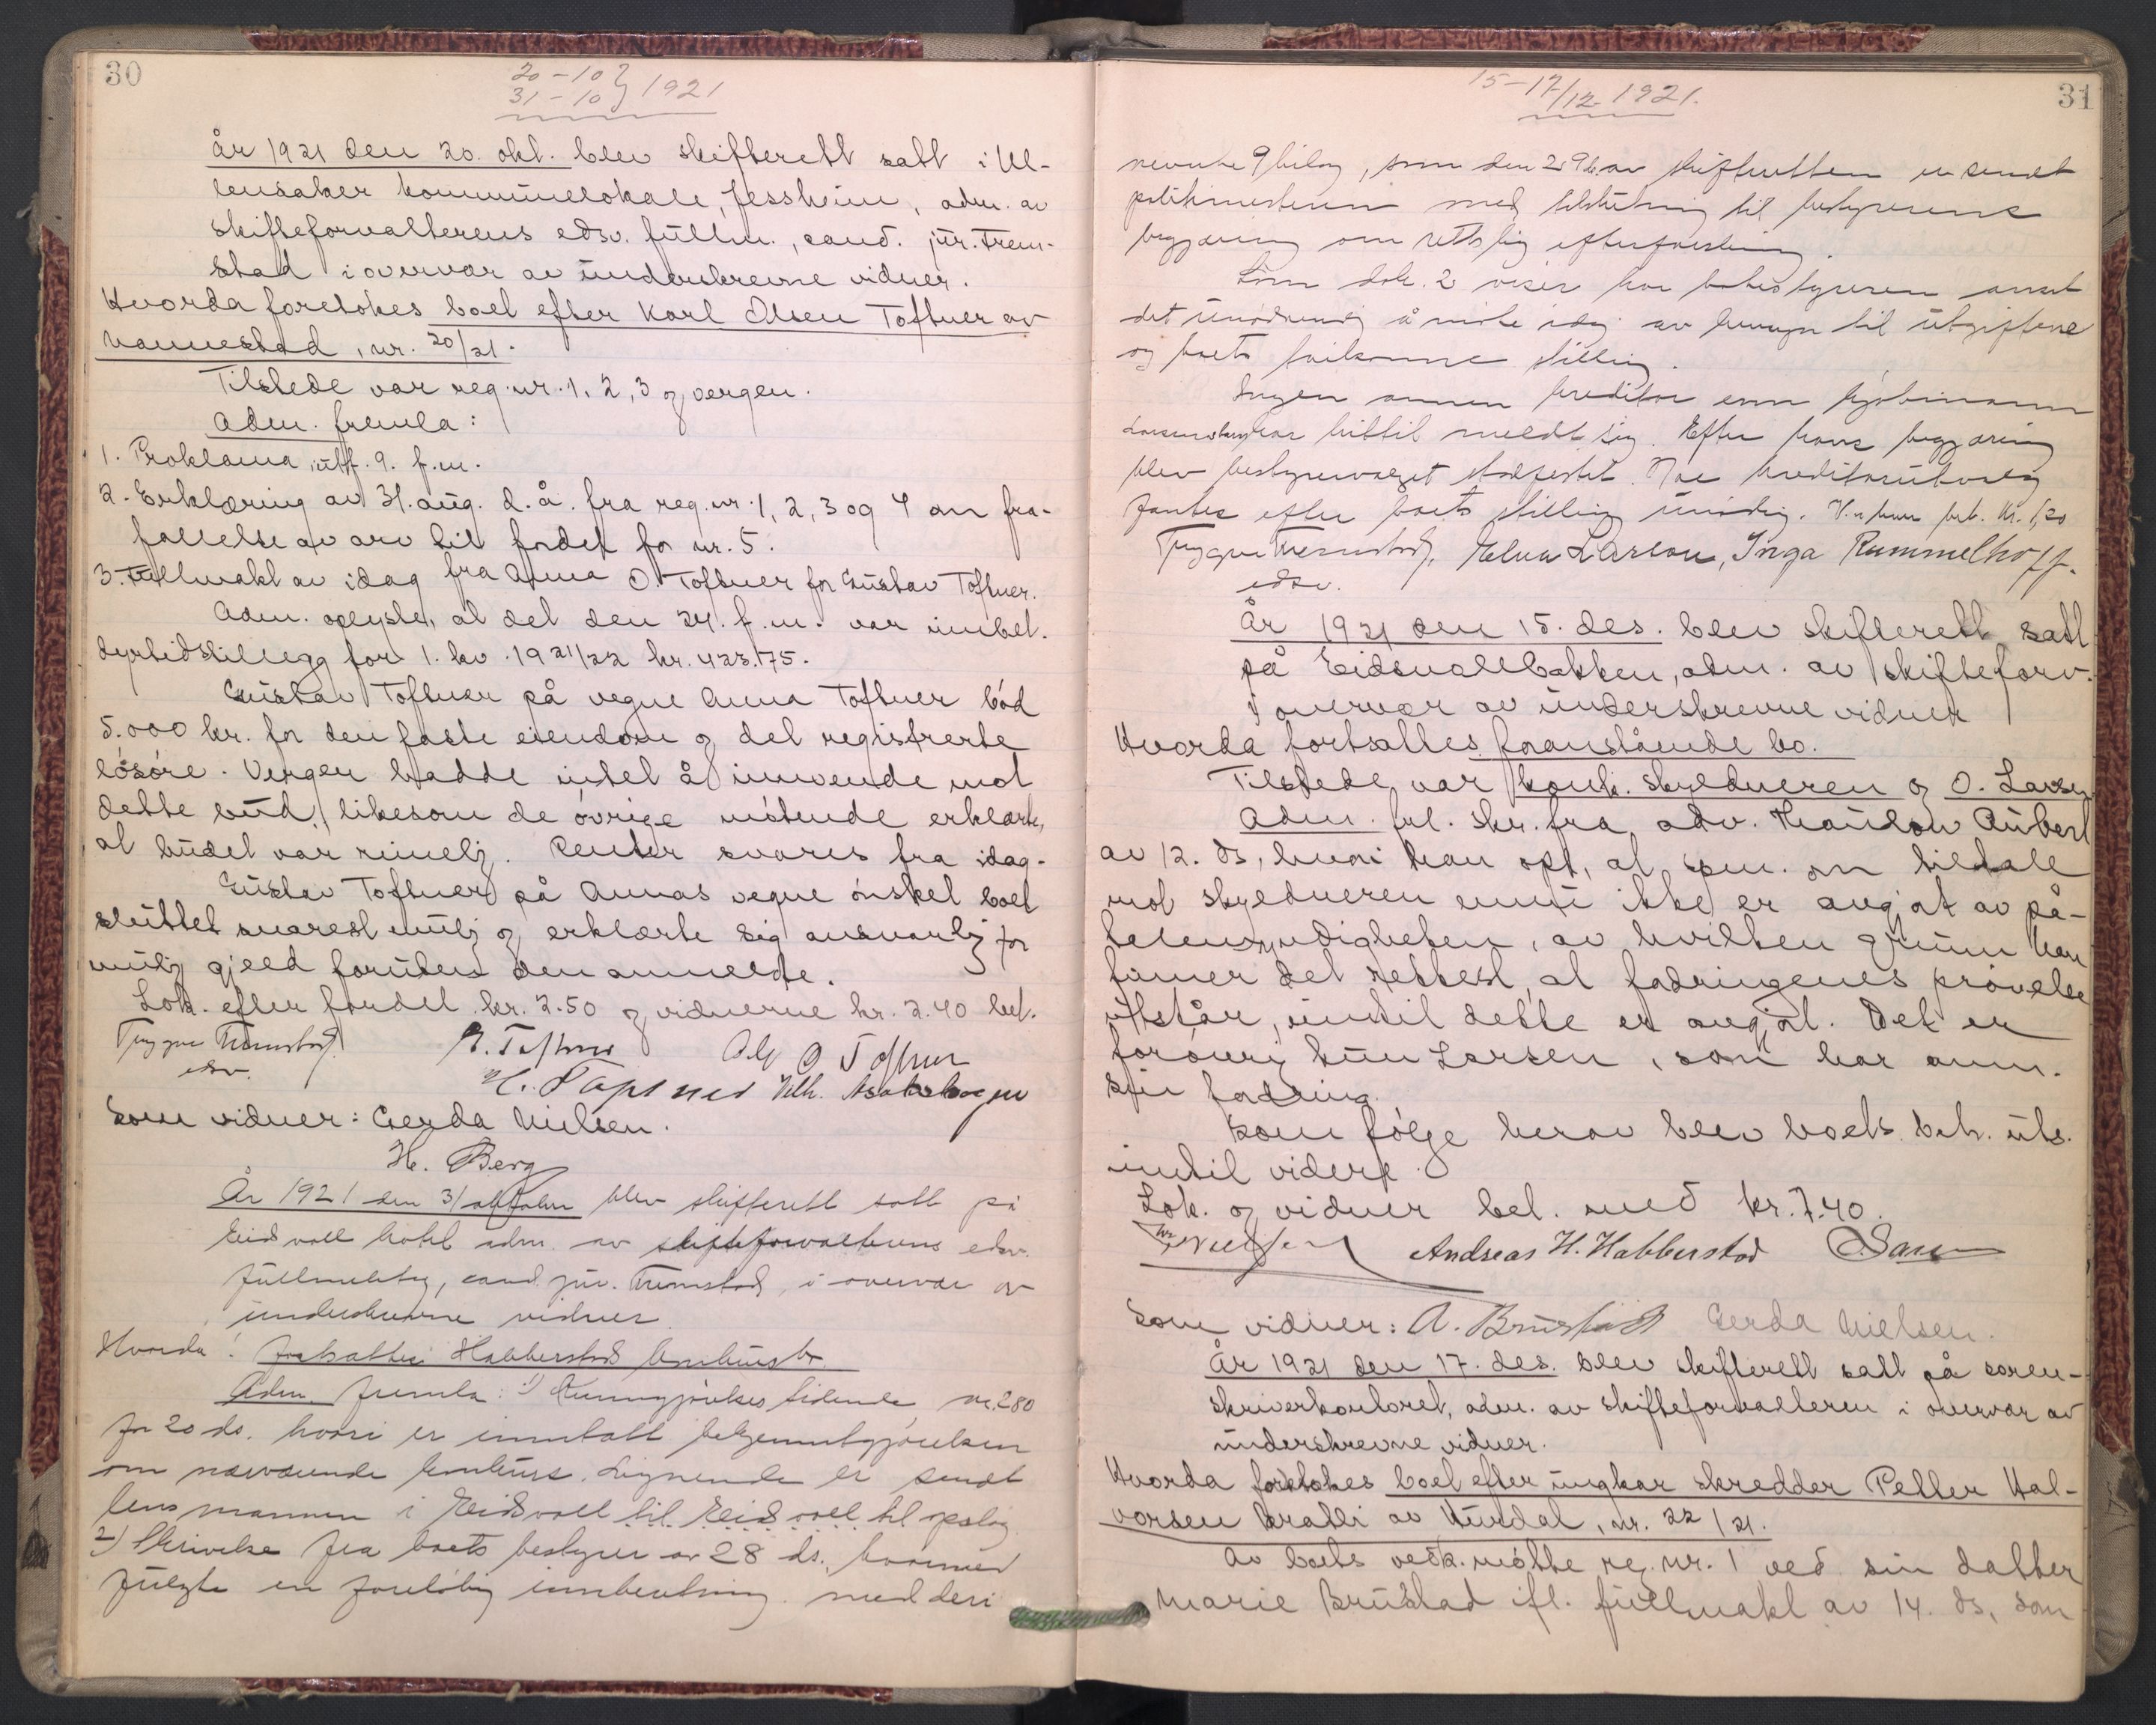 30
20-10 } 1921
31-10
År 1921 den 20. okt. blev skifterett satt i Ul-
lensaker kommunelokale, Jessheim, adm. av
skifteforvalterens edsv. fullm., cand. jur. Trem-
stad i overvær av underskrevne vidner.
Hvorda foretokes boet efter Karl Olsen Toftner av
Nannestad, nr. 20/21.
Tilstede var reg. nr. 1, 2, 3 og vergen.
Adm. fremla:
1. Proklama utst. 9. f.m.
2. Erklæring av 31. aug. d.å. fra reg. nr. 1, 2, 3 og 4 om fra-
fallelse av arv til fordel for nr. 5.
3. Fullmakt av idag fra Anna O. Toftner for Gustav Toftner.
Adm. oplyste, at det den 24. f.m. var innbet.
dyrtidstillegg for 1. kv. 1921/22 kr. 423.75.
Gustav Toftner på vegne Anna Toftner bød
5.000 kr. for den faste eiendom og det registrerte
løsøre. Vergen hadde intet å innvende mot
dette bud, likesom de øvrige møtende erklærte,
at budet var rimelig. Renter svares fra idag.
Gustav Toftner på Annas vegne ønsket boet
sluttet snarest mulig og erklærte sig ansvarlig for
mulig gjeld foruten den anmeldte.
Lok. efter fordel. kr. 2.50 og vidnerne kr. 2.40 bet.
Trygve Tremstad G. Toftner Alf O Toftner
edsv. H. Toftner Vilh. Asakskogen
Som vidner: Gerda Nielsen.
H. Berg
År 1921 den 31 oktober blev skifterett satt på
Eidsvoll hotel adm. av skifteforvalterens edsv.
fullmektig, cand. jur. Tremstad, i overvær av
underskrevne vidner.
Hvorda: fortsattes Habberstad konkursbo.
Adm. fremla: 1) Kunngjørelsestidende nr. 280
for 20 ds. hvori er inntatt bekjenntgjørelsen
om nærværende konkurs. Lignende er sendt
lensmannen i Eidsvoll til Eidsvoll til opslag
2) Skrivelse fra boets bestyrer av 28 ds., hvormed
fulgte en foreløbig innberetning med deri
15-17/12 1921.
31
nevnte 9 bilag, som den 29 b. av skifteretten er sendt
politimesteren med tilslutning til bestyrerens
begjæring om rettslig efterforskning.
Som dok. 2 viser har bobestyreren ansett
det unødvendig å møte idag av hensyn til utgiftene
og boets tvilsomme stilling.
Ingen annen kreditor enn kjøbmann
Larsen har hittil meldt sig. Efter hans begjæring
blev bestyrervalget stadfestet. Noe kreditorutvalg
fantes efter boets stilling unødig. Vidnene bet. kr. 1,20
Trygve Tremstad, Elna Larson, Inga Rummelhoff.
edsv.
År 1921 den 15. des. blev skifterett satt
på Eidsvollbakken, adm. av skifteforv.
i overvær av underskrevne vidner
Hvorda fortsattes foranstående bo.
Tilstede var konk. skyldneren og O. Larsen
Adm. frl. skr. fra adv. Haulow Aubert
av 12. ds., hvori han opl., at spm. om tiltale
mot skyldneren ennu ikke er avgjort av på-
talemyndigheten, av hvilken grunn han
finner det rettest, at fordringenes prøvelse
utstår, inntil dette er avgjort. Det er
forøvrig kun Larsen, som har anm.
sin fordring.
Som følge herav blev boets beh. uts.
inntil videre.
Lok. og vidner bet. med kr. 7.40.
Andreas H. Habberstad
Som vidner: A. Brustad Gerda Nielsen.
År 1921 den 17. des. blev skifterett satt på soren-
skriverkontoret, adm. av skifteforvalteren i overvær av
underskrevne vidner.
Hvorda foretokes boet efter ungkar skredder Petter Hal-
vorsen Kratli av Hurdal, nr. 22/21.
Av boets vedk. møtte reg. nr. 1 ved sin datter
Marie Brustad ifl. fullmakt av 14. ds, som